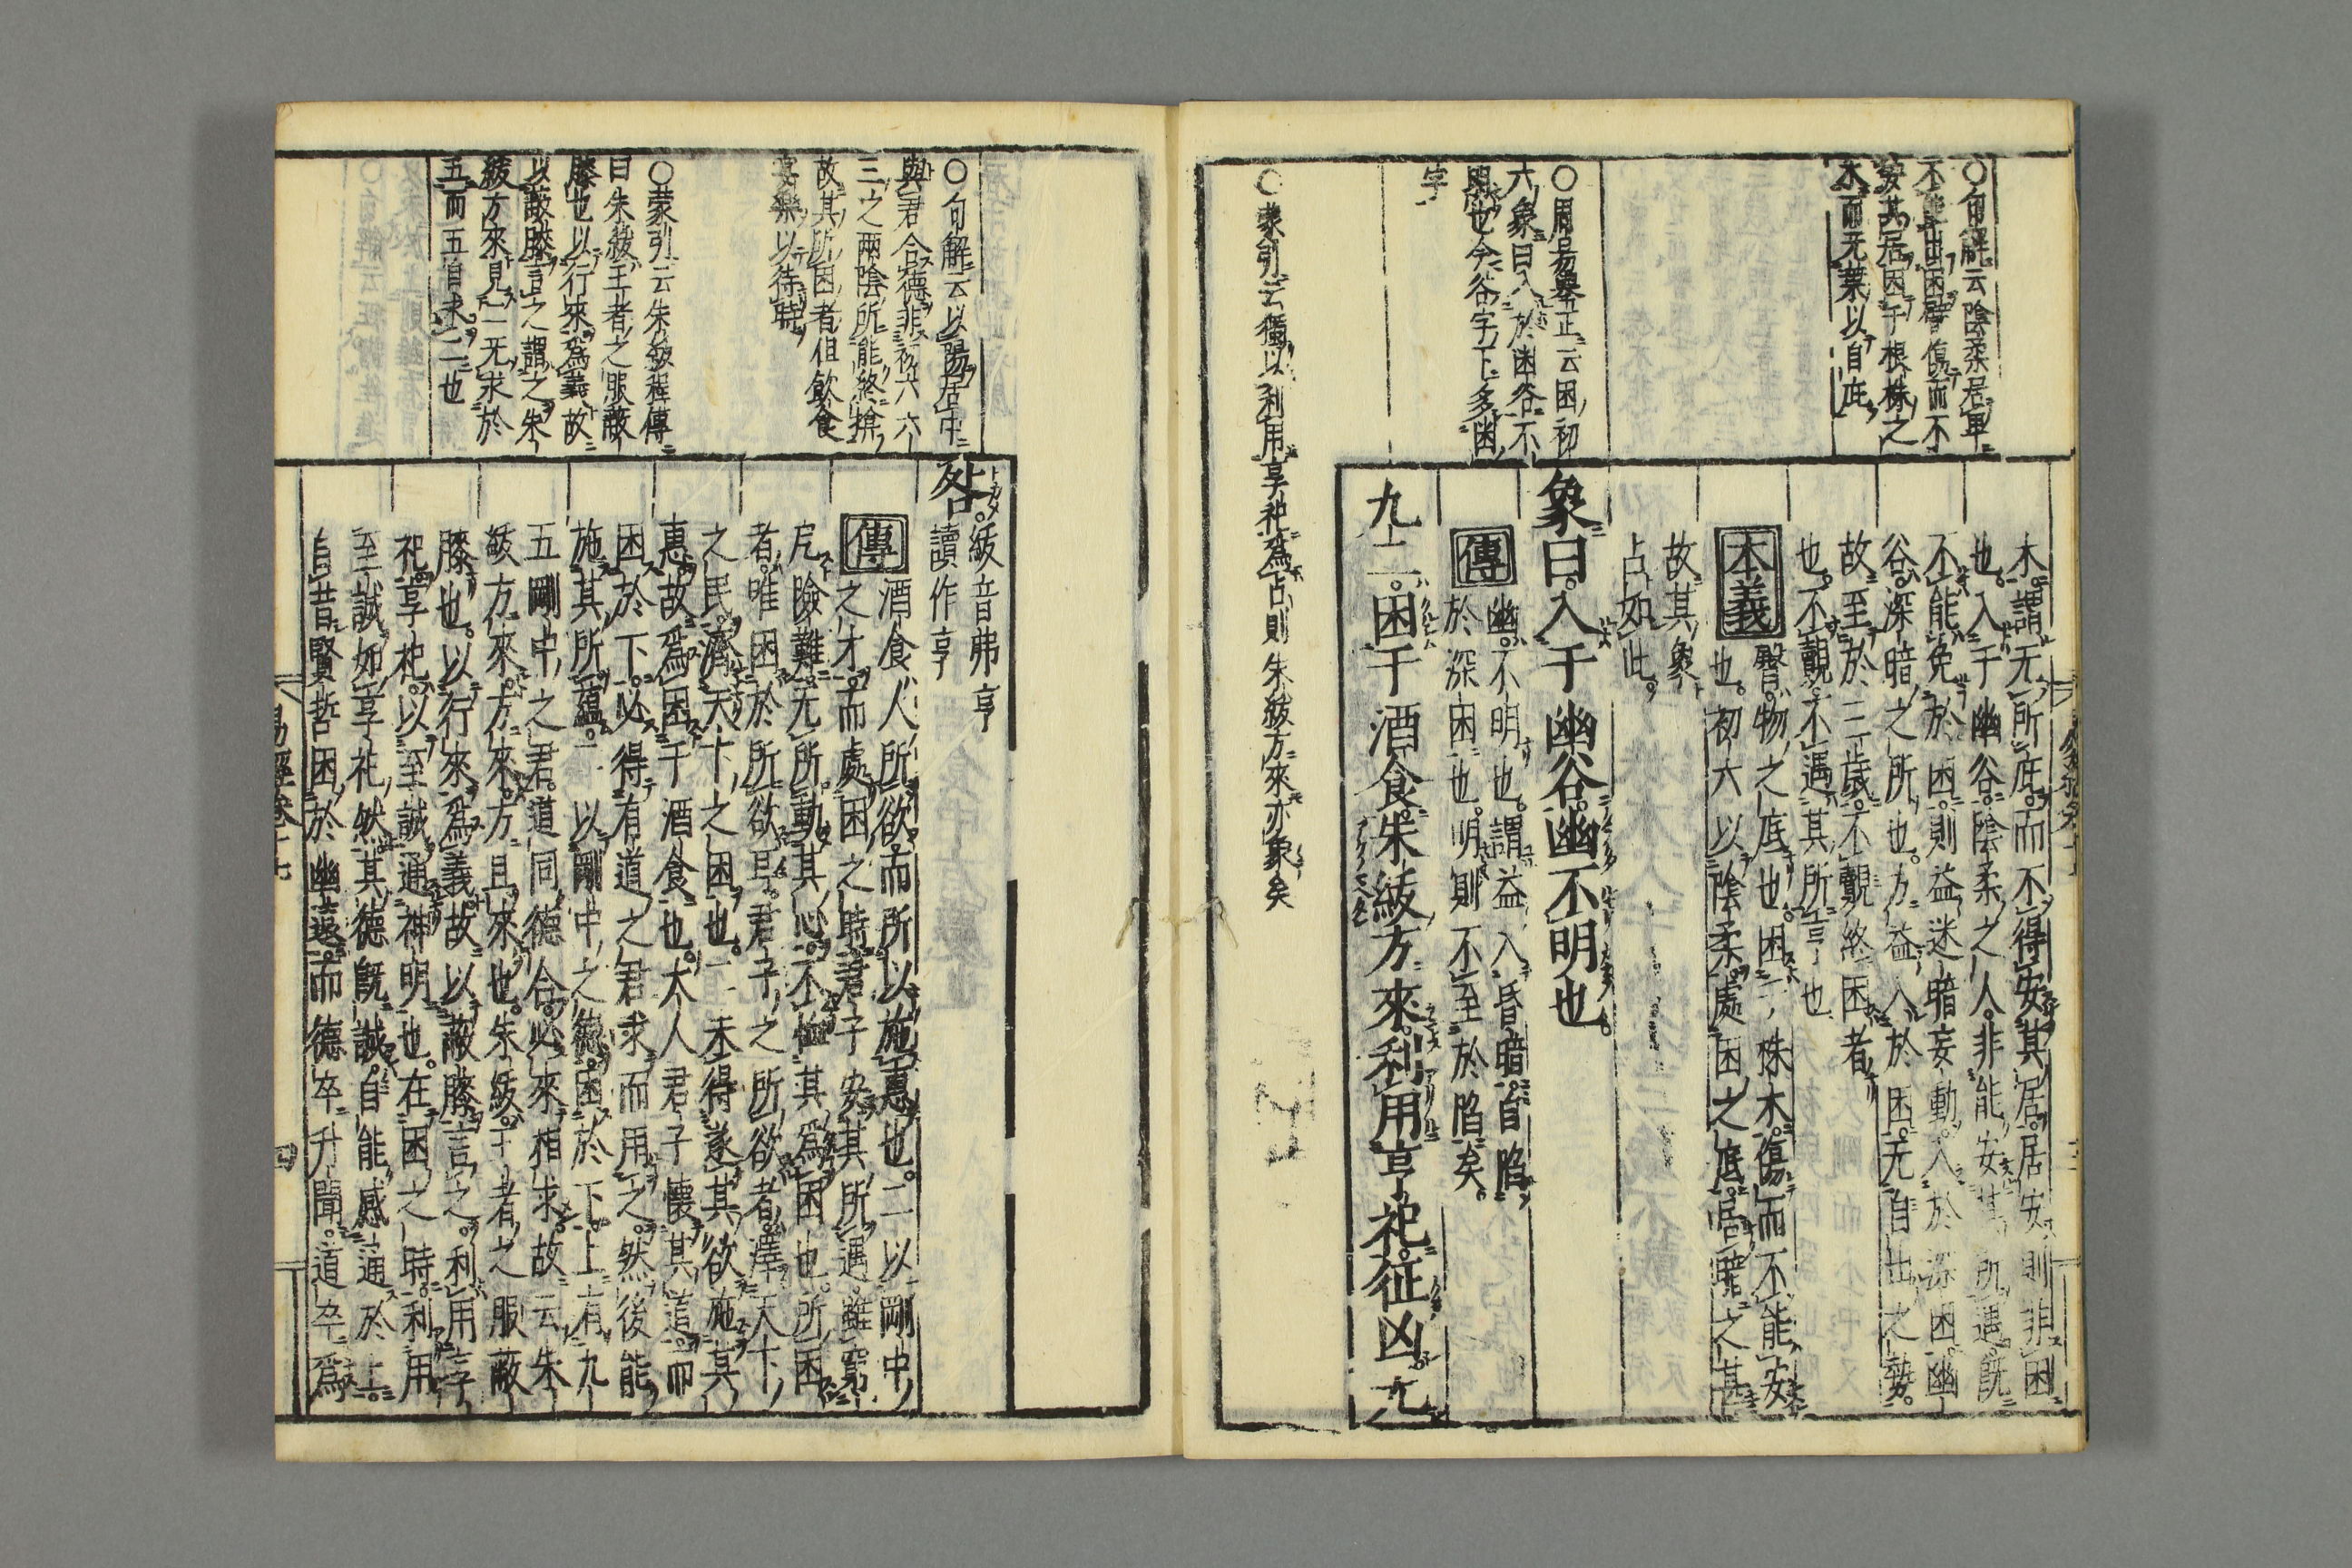 ○句解云陰柔居卑
不能出困臀傷而不
安其居困于根株之
木而无葉以自庇
○周易舉正云困初
六象曰入於幽谷不
明也今谷字下多幽
字
○蒙引云獨以利用享祀爲占則朱紱方來亦象矣
木。謂无所庇。而不得安其居。居安則非困
也。入于幽谷。陰柔之人。非能安其所遇。既
不能免於困。則益迷暗妄動。入於深困。幽
谷。深暗之所也。方益入於困。无自出之勢。
故至於三歲。不覿終困者
也。不覿。不遇其所亨也
本義 臀。物之底也。困于株木。傷而不能安
也。初六以陰柔處困之底。居暗之甚。
故其象
占如此。
象曰。入于幽谷。幽不明也。
傳 幽。不明也。謂益入昏暗。自陷
於深困也。明則不至於陷矣。
九二。困于酒食。朱紱方來。利用亨祀。征凶。无
○句解云以陽居中
與君合德非初六六
三之兩陰所能終揜
故其所困者但飲食
宴樂以待時
○蒙引云朱紱程傳
曰朱紱王者之服蔽
膝也以行來爲義故
以蔽膝言之謂之朱
紱方來見二无求於
五而五自求二也
咎。
紱音弗亨
讀作享
傳 酒食。人所欲。而所以施惠也。二以剛中
之才。而處困之時。君子安其所遇。雖窮
戹險難。无所動其心。不恤其爲困也。所困
者。唯困於所欲耳。君子之所欲者。澤天下
之民。濟天下之困也。二未得遂其欲。施其
惠。故爲困于酒食也。大人君子懷其道。而
困於下。必得有道之君。求而用之。然後能
施其所蘊。二以剛中之德。困於下。上有九
五剛中之君。道同德合。必來相求。故云朱
紱方來。方來。方且來也。朱紱。王者之服。蔽
膝也。以行來爲義。故以蔽膝言之。利用享
祀。享祀。以至誠通神明也。在困之時。利用
至誠。如享祀然。其德既誠。自能感通於上。
自昔賢哲困於幽遠。而德卒升聞。道卒爲
易經卷十七
四